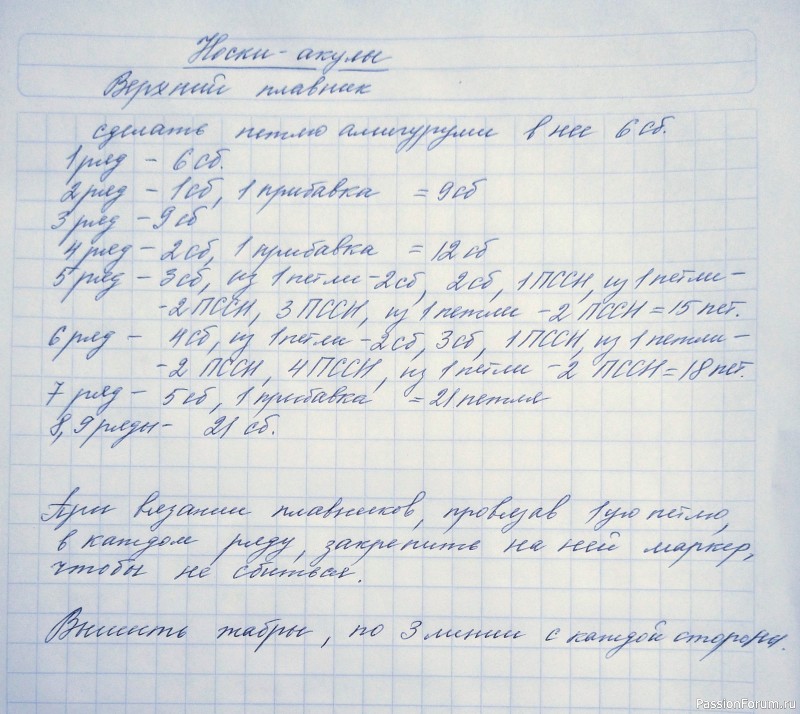 Носки-акулы
Верхний плавник
сделать петлю амигуруми в нее 6 сб.
1 ряд - 6 сб.
2 ряд - 1 сб, 1 прибавка = 9 сб
3 ряд - 9 сб
4 ряд - 2 сб, 1 прибавка = 12 сб
5 ряд - 3 сб, из 1 петли - 2 сб, 2 сб, 1 ПССН, из 1 петли -
- 2 ПССН, 3 ПССН, из 1 петли - 2 ПССН = 15 пет.
6 ряд - 4 сб, из 1 петли - 2 сб, 3 сб, 1 ПССН, из 1 петли -
- 2 ПССН, 4 ПССН, из 1 петли - 2 ПССН = 18 пет.
7 ряд - 5 сб, 1 прибавка = 21 петля
8, 9 ряды - 21 сб.
При вязании плавников, провязав 1ую петлю,
в каждом ряду, закрепите на ней маркер,
чтобы не сбиться.
Вышить жабры, по 3 линии с каждой стороны.
PassionForum.ru